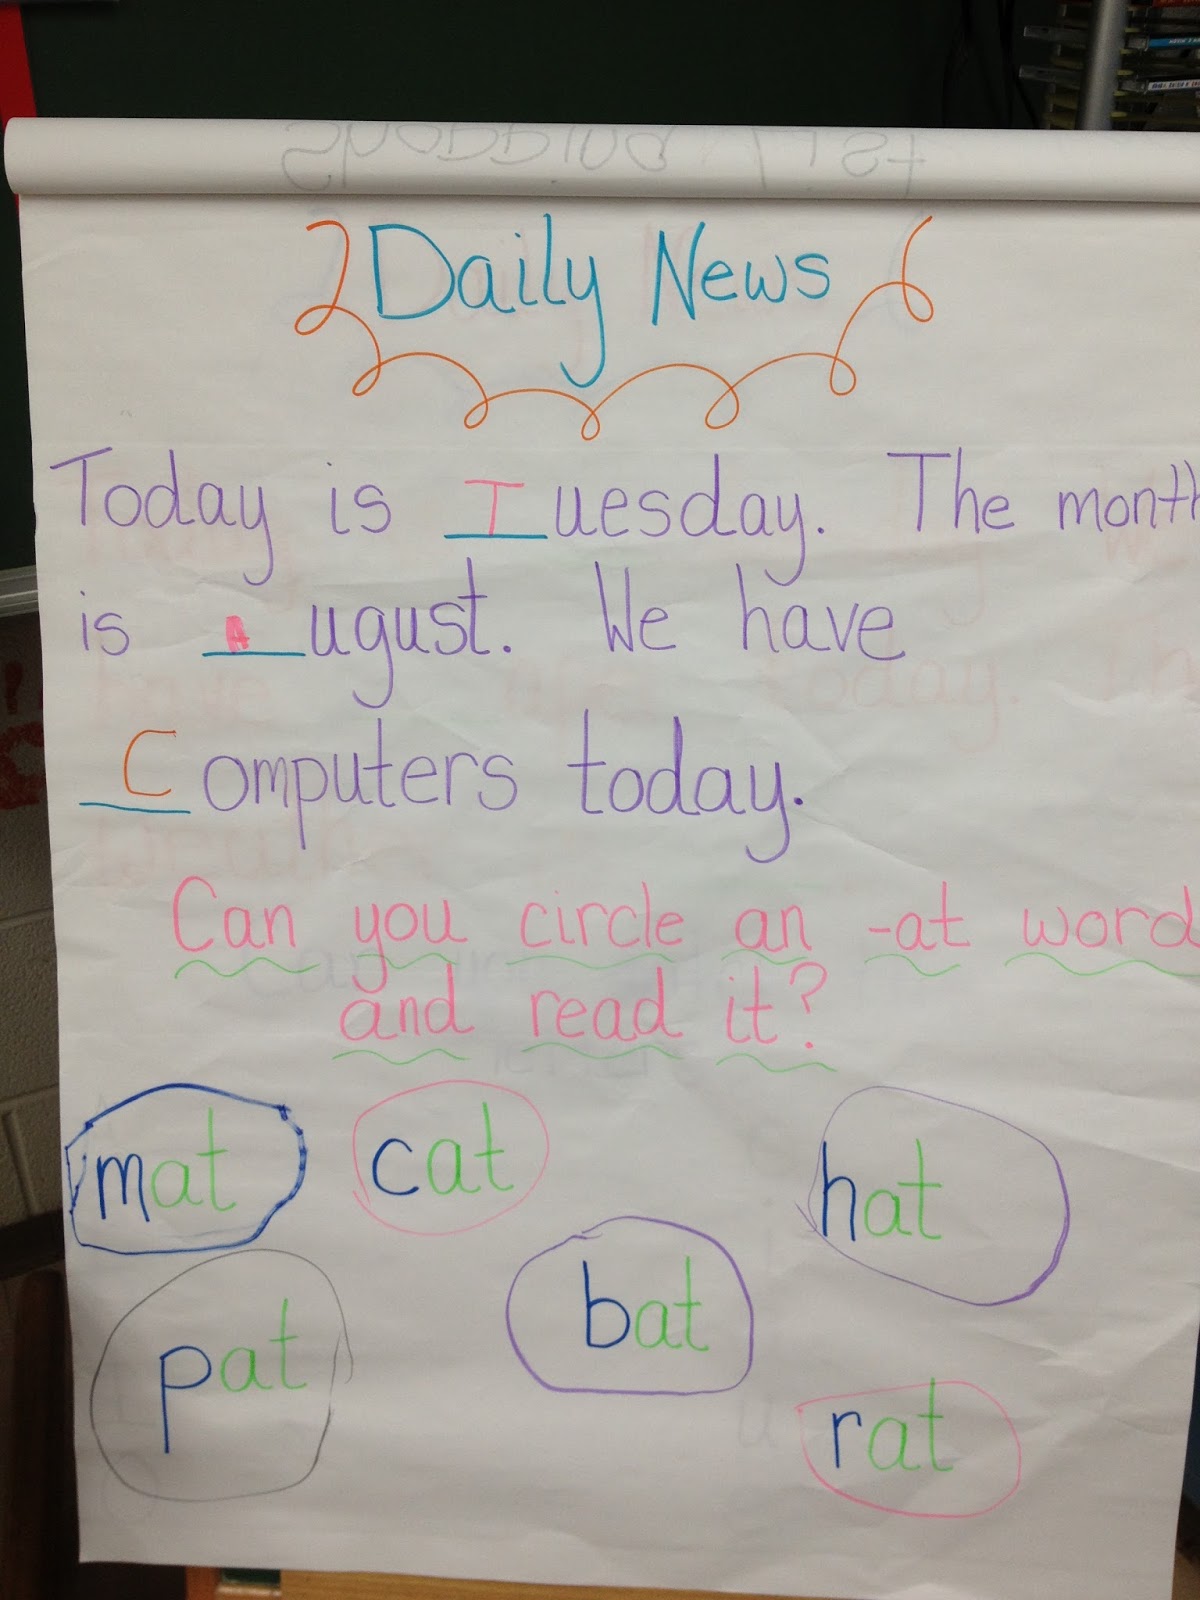 Shopping List
Daily News
Today is Tuesday. The month
is August. We have
Computers today.
Can you circle an -at word
and read it?
mat cat hat
pat bat
rat